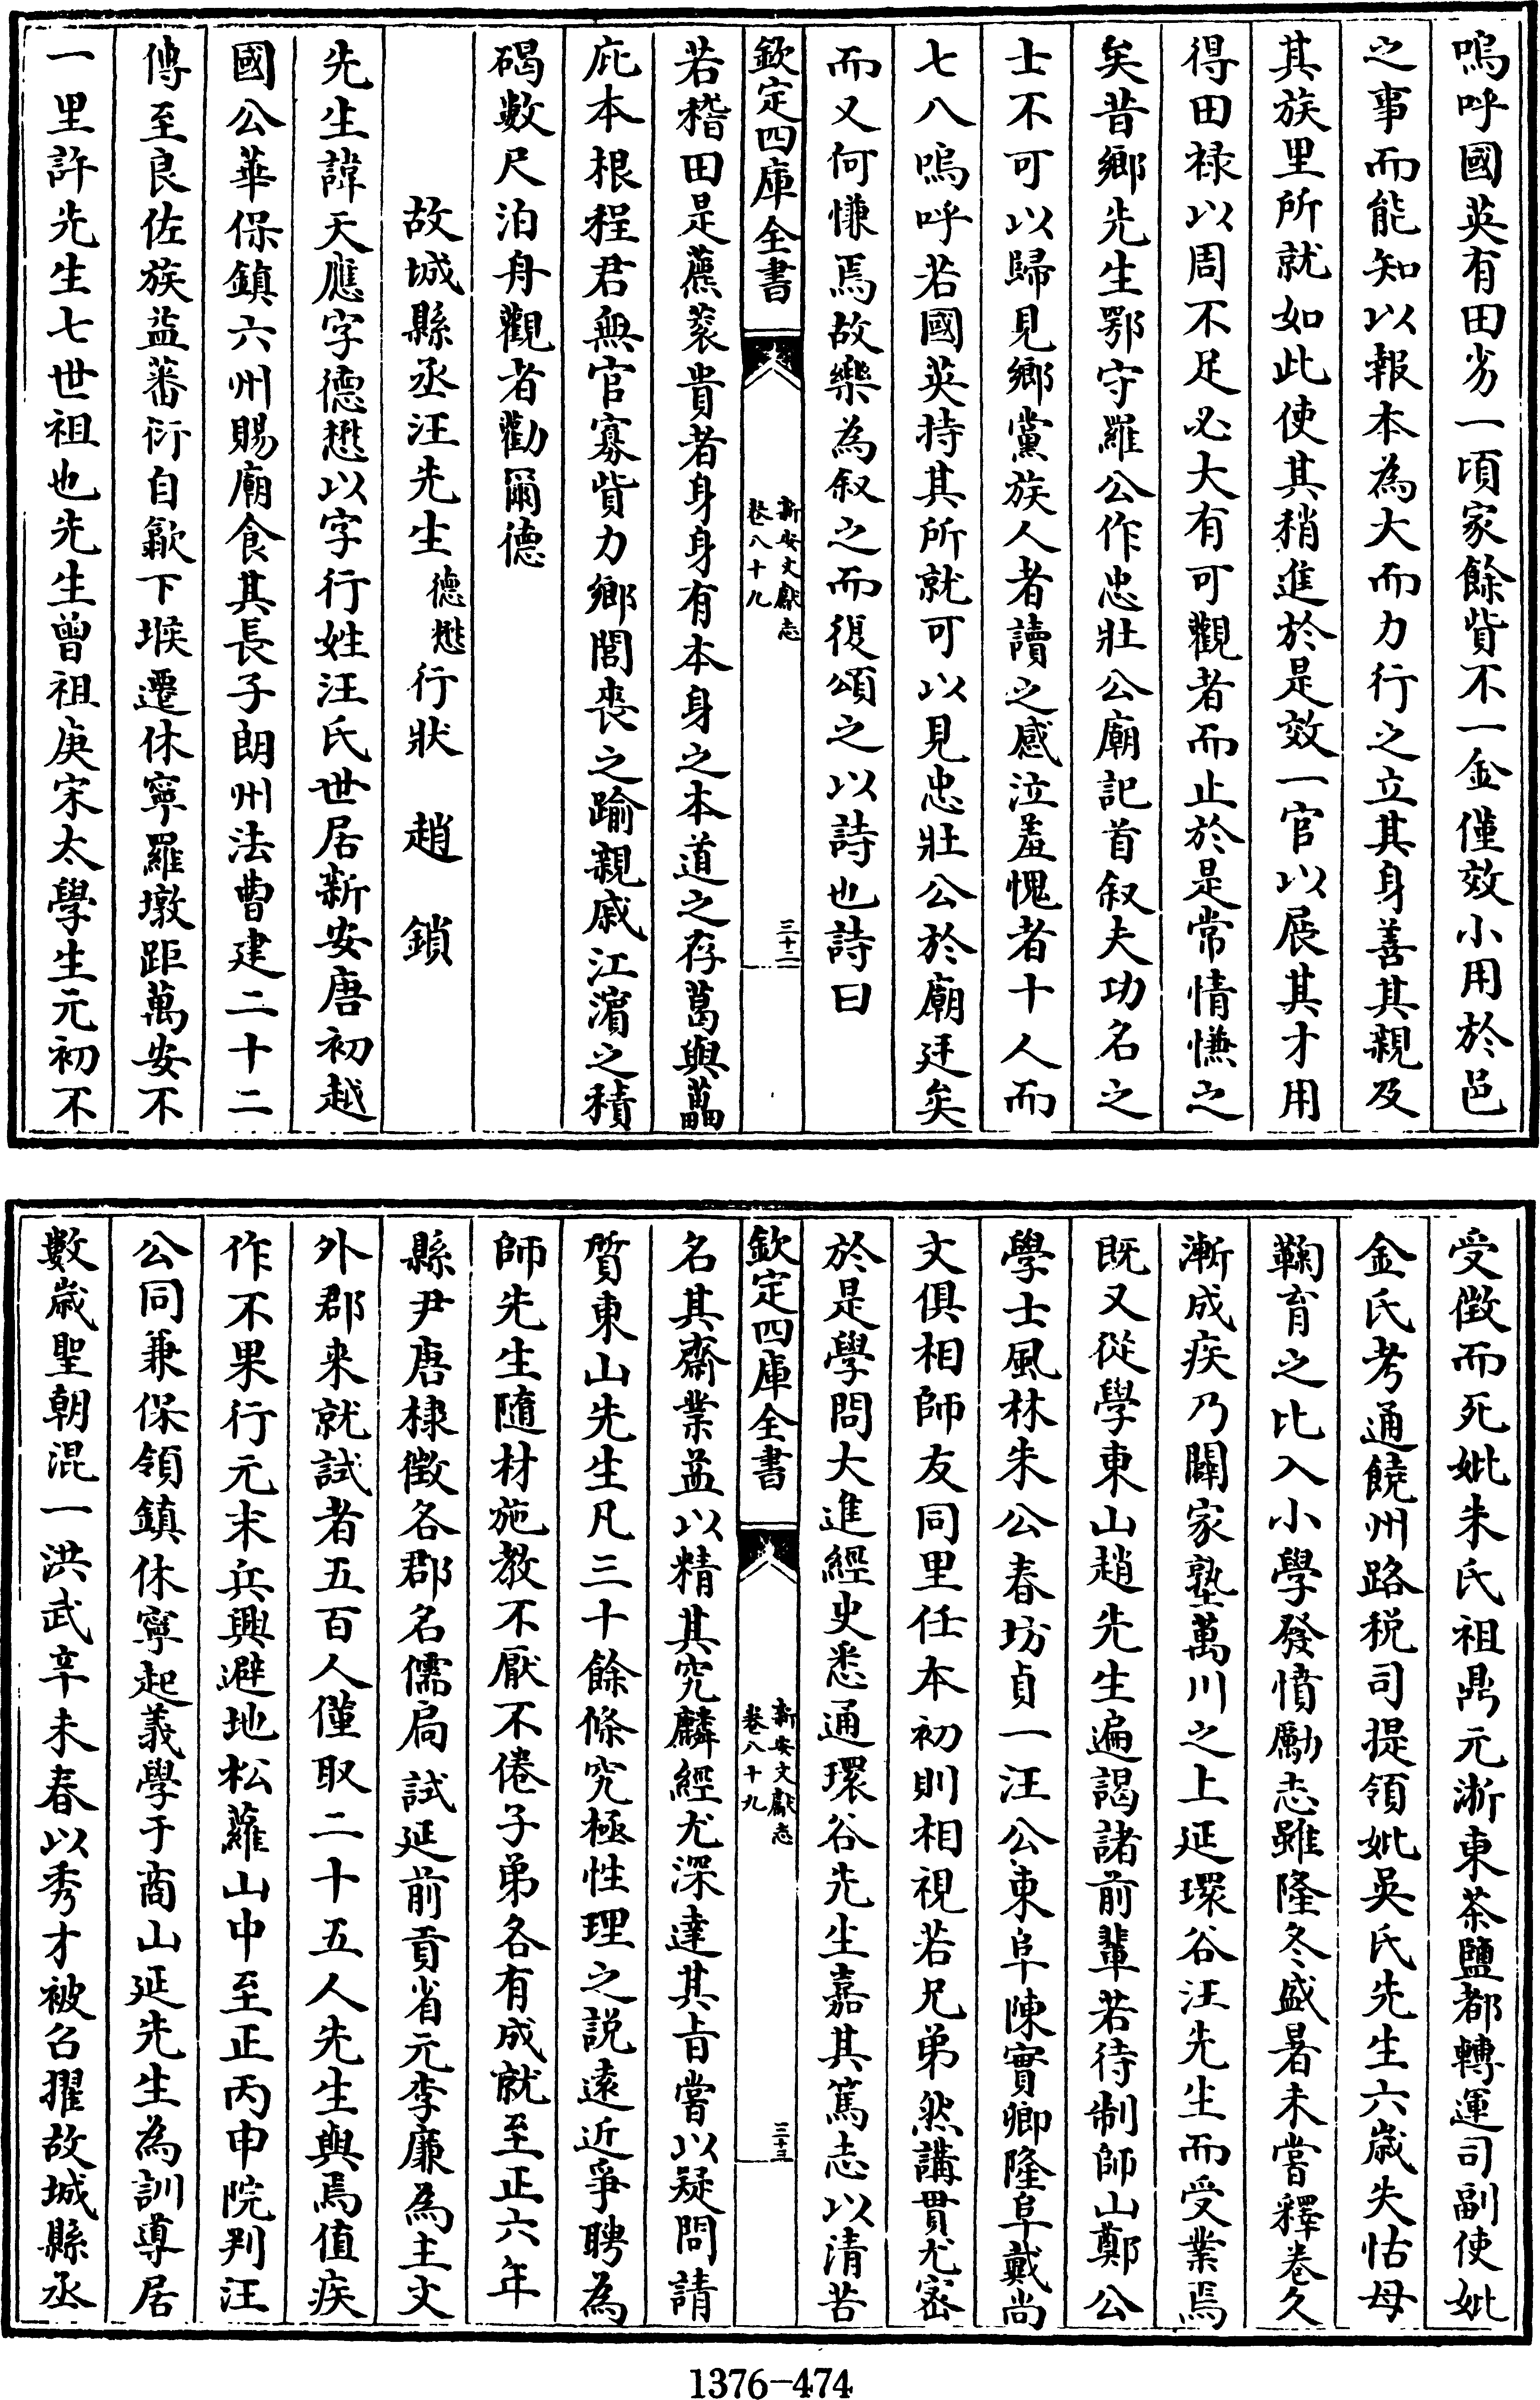 嗚呼國英有田劣一頃家餘貲不一金僅效小用於邑
之事而能知以報本為大而力行之立其身善其親及
其族里所就如此使其稍進於是效一官以展其才用
得田禄以周不足必大有可觀者而止於是常情慊之
矣昔鄉先生鄂守羅公作忠壯公廟記首叙夫功名之
士不可以歸見鄉黨族人者讀之感泣羞愧者十人而
七八嗚呼若國英持其所就可以見忠壯公於廟廷矣
而又何慊焉故樂為叙之而復頌之以詩也詩曰
欽定四庫全書
新安文獻志
卷八十九
三十二
若稽田是藨蔉貴者身身有本身之本道之存葛與藟
庇本根程君無官寡貲力鄉閭喪之踰親戚江濵之積
碣數尺泊舟觀者勸爾德
故城縣丞汪先生德懋行狀 趙鎖
先生諱天應字德懋以字行姓汪氏世居新安唐初越
國公華保鎮六州賜廟食其長子朗州法曹建二十二
傳至良佐族益蕃衍自歙下堠遷休寧羅墩距萬安不
一里許先生七世祖也先生曾祖庚宋太學生元初不
受徴而死妣朱氏祖鼎元浙東茶鹽都轉運司副使妣
金氏考通饒州路税司提領妣吳氏先生六歲失怙母
鞠育之比入小學發憤勵志雖隆冬盛暑未嘗釋卷久
漸成疾乃闢家塾萬川之上延環谷汪先生而受業焉
既又從學東山趙先生遍謁諸前輩若待制師山鄭公
學士風林朱公春坊貞一汪公東阜陳實卿隆阜戴尚
文俱相師友同里任本初則相視若兄弟然講貫尤宻
於是學問大進經史悉通環谷先生嘉其篤志以清苦
欽定四庫全書
新安文獻志
卷八十九
三十三
名其齋業益以精其究麟經尤深達其旨嘗以疑問請
質東山先生凡三十餘條究極性理之説遠近爭聘為
師先生隨材施教不厭不倦子弟各有成就至正六年
縣尹唐棣徴各郡名儒局試延前貢省元李廉為主文
外郡来就試者五百人僅取二十五人先生與焉值疾
作不果行元末兵興避地松蘿山中至正丙申院判汪
公同兼保領鎮休寧起義學于商山延先生為訓導居
數歲聖朝混一洪武辛未春以秀才被召擢故城縣丞
1376-474